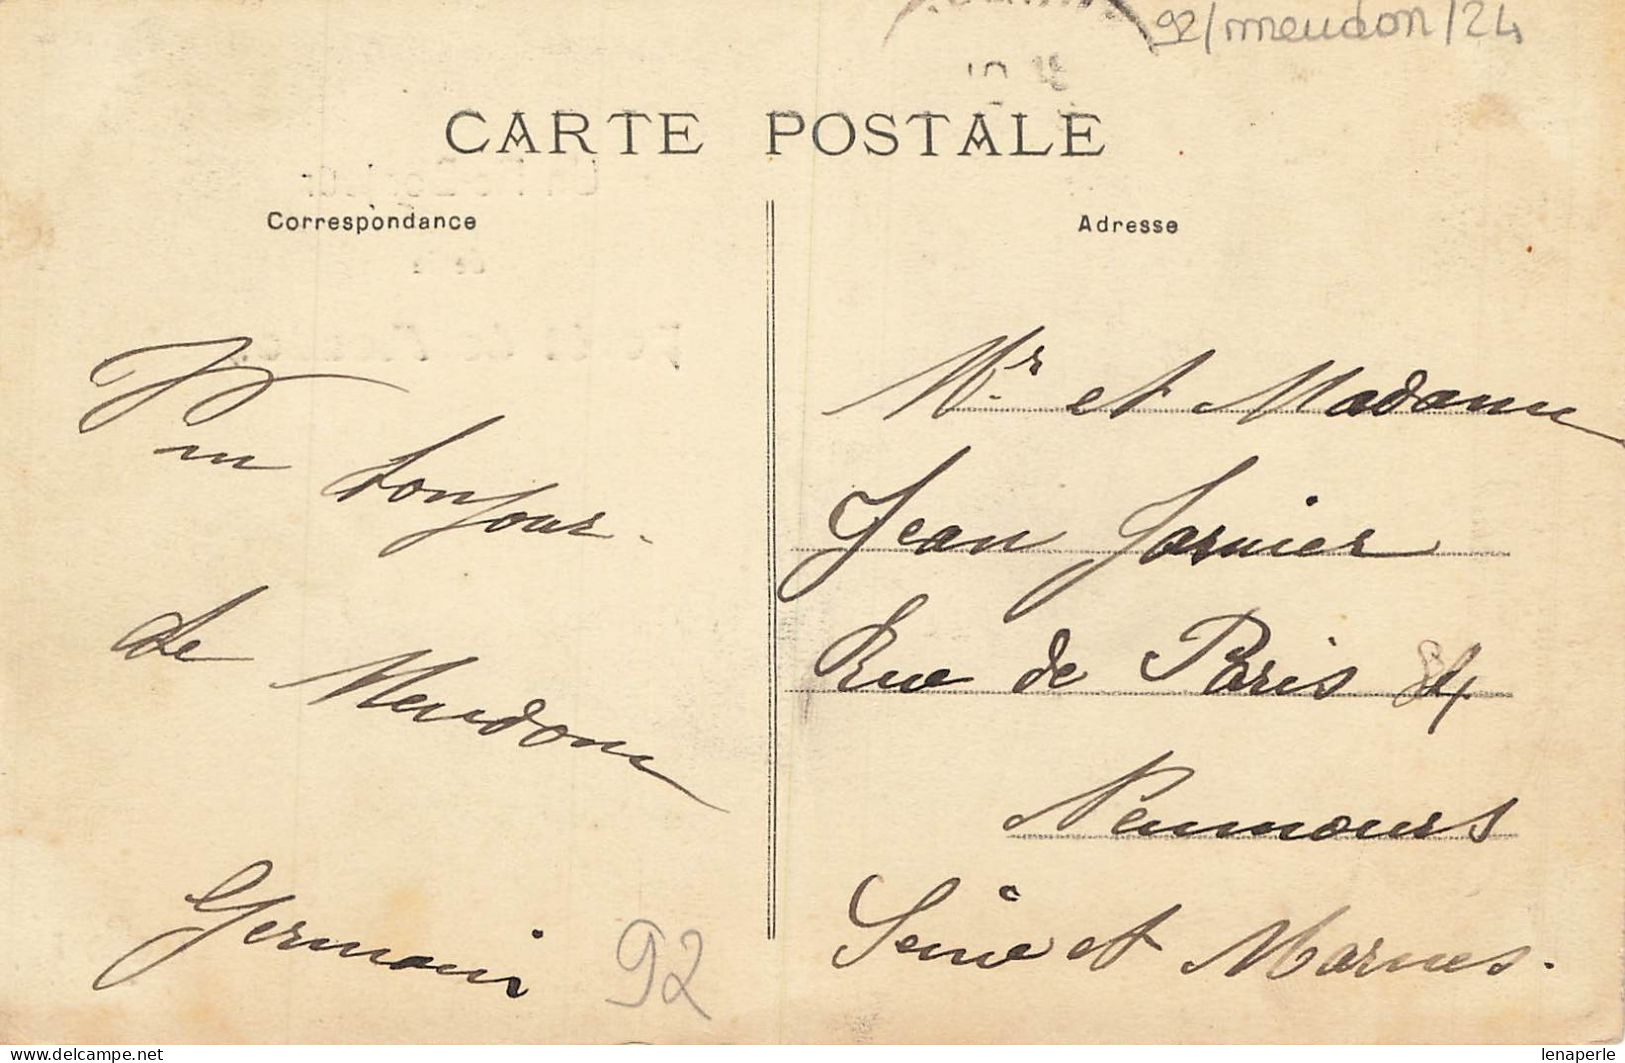 92/meudon/24
CARTE POSTALE
Correspondance
Adresse
Un
bonjour.
de Meudon
Germain
92
Mr. et Madame
Jean Garnier
Rue de Paris 84
Nemours
Seine et Marnes.
lenaperle